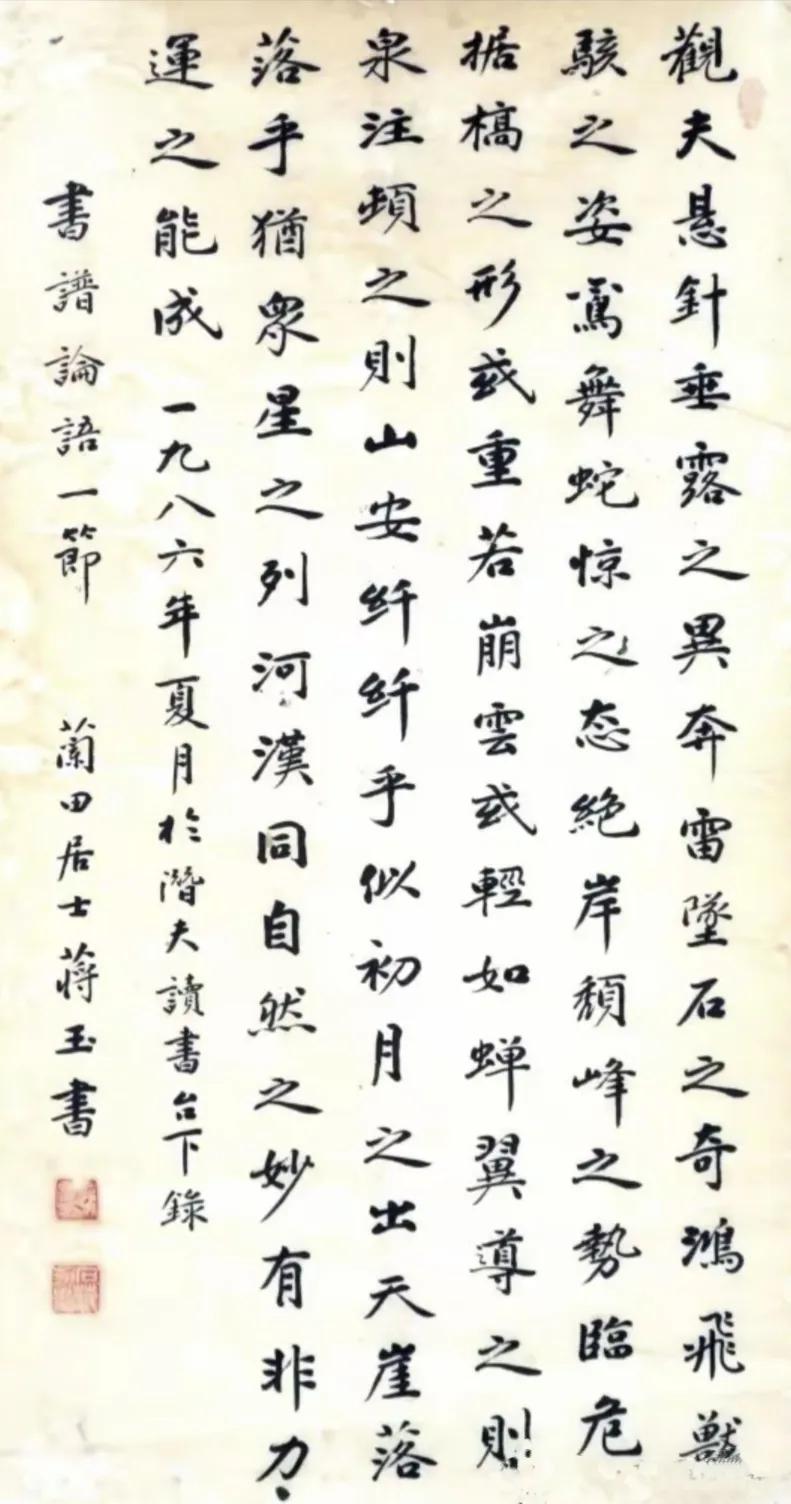 觀夫悬針垂露之異奔雷墜石之奇鴻飛獸
駭之姿鸞舞蛇惊之态絶岸頹峰之勢臨危
据槁之形或重若崩雲或輕如蝉翼導之則
泉注頓之則山安纤纤乎似初月之出天崖落
落乎猶衆星之列河漢同自然之妙有非力
運之能成 一九八六年夏月於潛夫讀書台下錄
書譜論語一節 蘭田居士蔣玉書